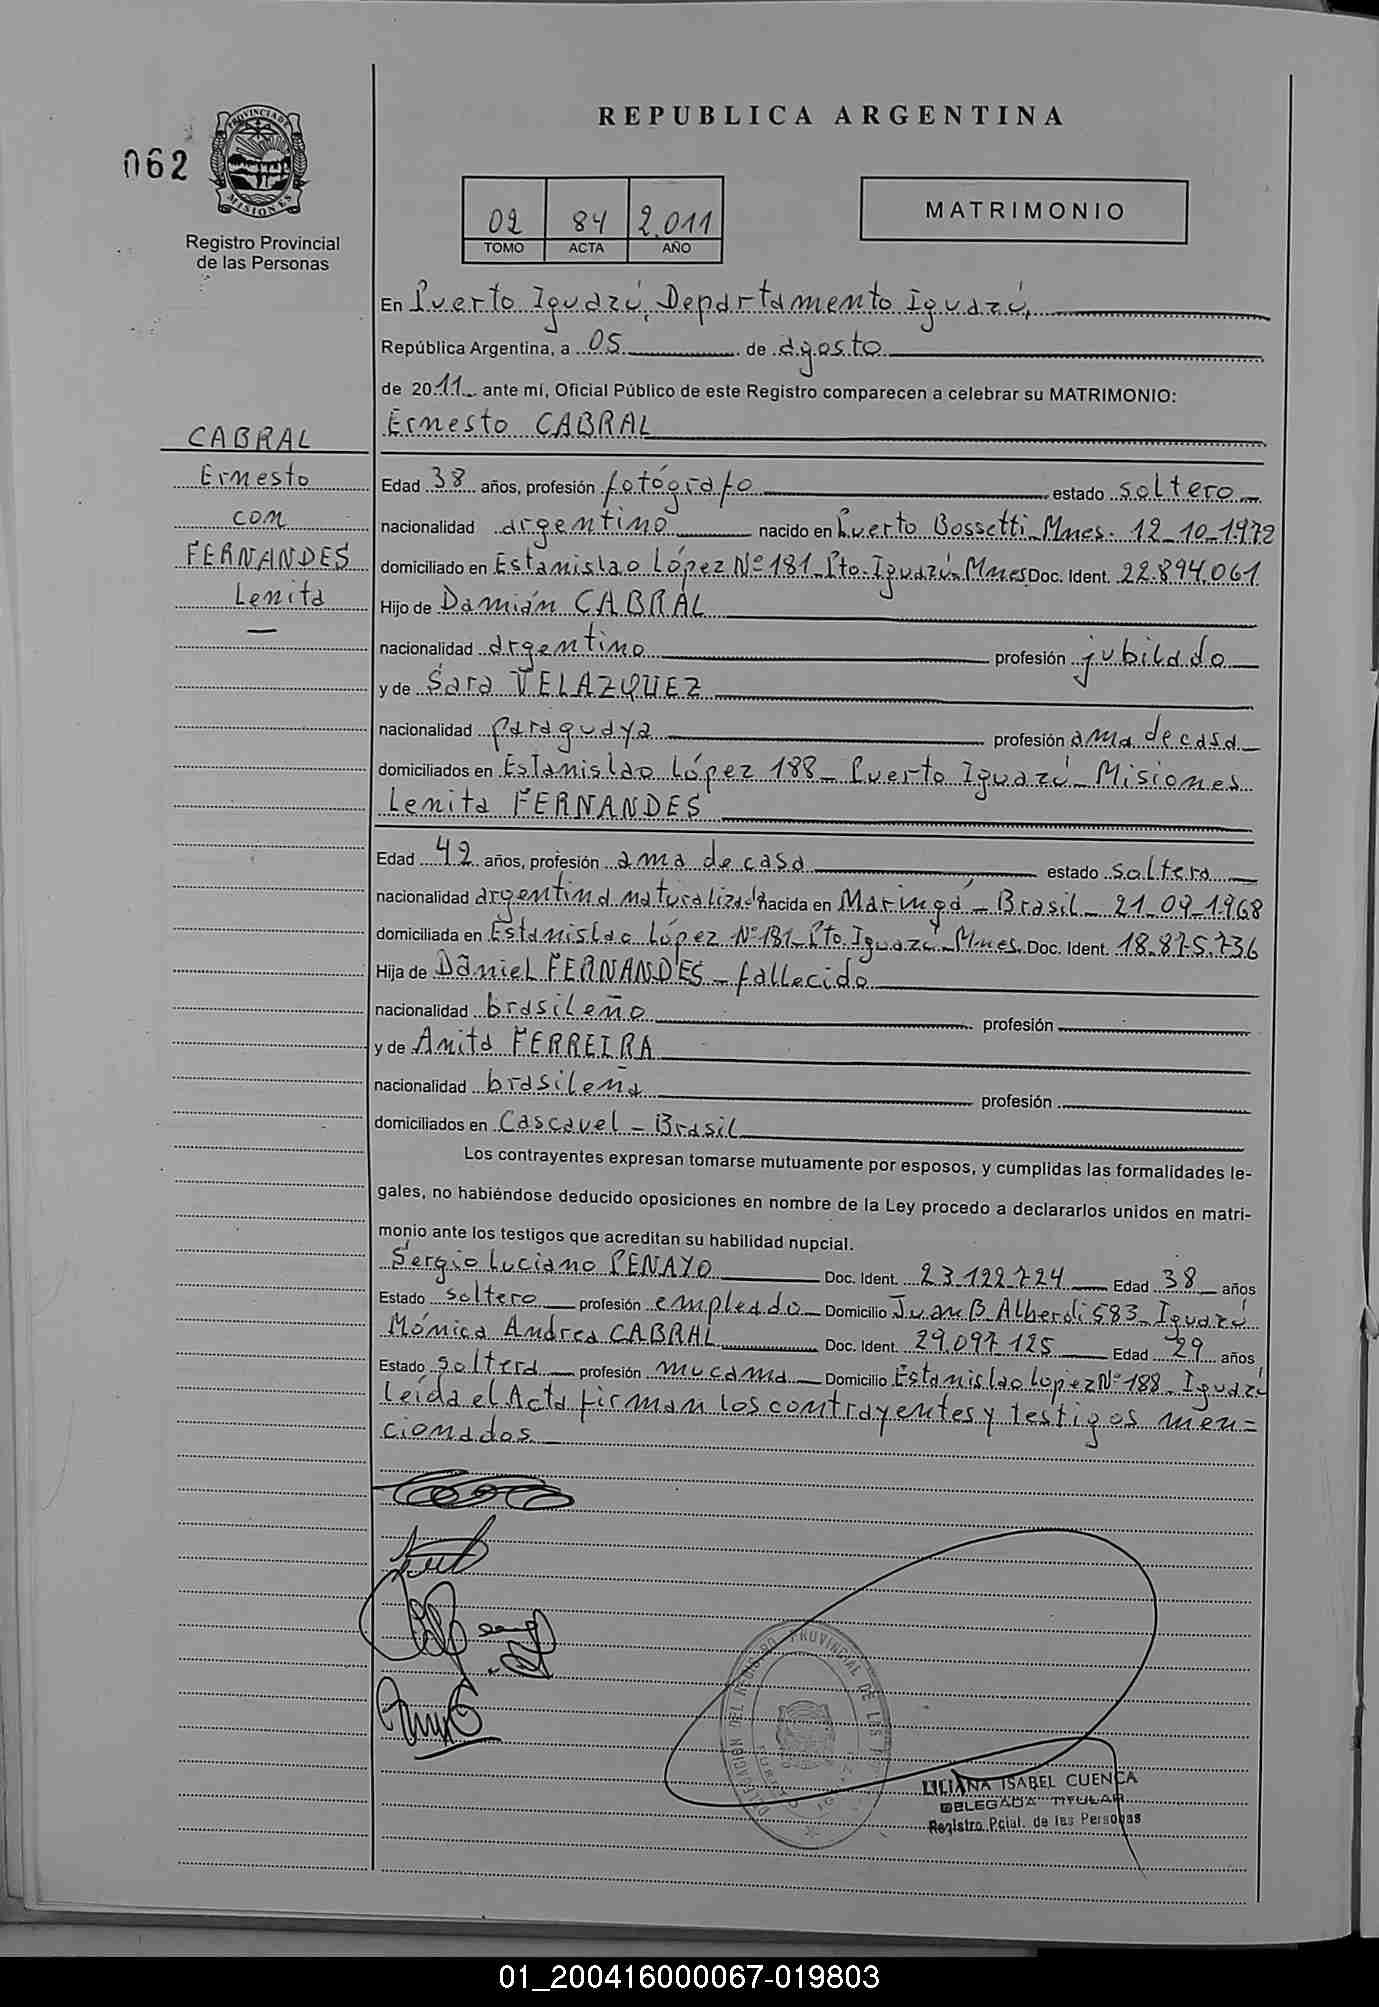 REPUBLICA ARGENTINA
062
PROVINCIA DE MISIONES
Registro Provincial
de las Personas
02 84 2.011
TOMO ACTA AÑO
MATRIMONIO
En Puerto Iguazú, Departamento Iguazú,
República Argentina, a 05 de agosto
de 2011 ante mí, Oficial Público de este Registro comparecen a celebrar su MATRIMONIO:
Ernesto CABRAL
CABRAL
Ernesto
con
FERNANDES
Lenita
Edad 38 años, profesión fotógrafo estado soltero
nacionalidad argentino nacido en Puerto Bossetti_Mnes. 12_10_1972
domiciliado en Estanislao López Nº 181_Pto. Iguazú_Mnes Doc. Ident. 22.894.061
Hijo de Damián CABRAL
nacionalidad argentino profesión jubilado
y de Sara VELAZQUEZ
nacionalidad paraguaya profesión ama de casa
domiciliados en Estanislao López 188_Puerto Iguazú_Misiones
Lenita FERNANDES
Edad 42 años, profesión ama de casa estado soltera
nacionalidad argentina naturalizada nacida en Maringá_Brasil_21_09_1968
domiciliada en Estanislao López Nº 181_Pto. Iguazú_Mnes. Doc. Ident. 18.875.736
Hija de Daniel FERNANDES_fallecido
nacionalidad brasileño profesión
y de Anita FERREIRA
nacionalidad brasileña profesión
domiciliados en Cascavel_Brasil
Los contrayentes expresan tomarse mutuamente por esposos, y cumplidas las formalidades le-
gales, no habiéndose deducido oposiciones en nombre de la Ley procedo a declararlos unidos en matri-
monio ante los testigos que acreditan su habilidad nupcial.
Sergio Luciano PENAYO Doc. Ident. 23.122.724 Edad 38 años
Estado soltero profesión empleado Domicilio Juan B. Alberdi 583_Iguazú
Mónica Andrea CABRAL Doc. Ident. 29.097.125 Edad 29 años
Estado soltera profesión mucama Domicilio Estanislao Lopez Nº 188_Iguazú
Leída el Acta firman los contrayentes y testigos men=
cionados
LILIANA ISABEL CUENCA
DELEGADA TITULAR
Registro Pcial. de las Personas
01_200416000067-019803